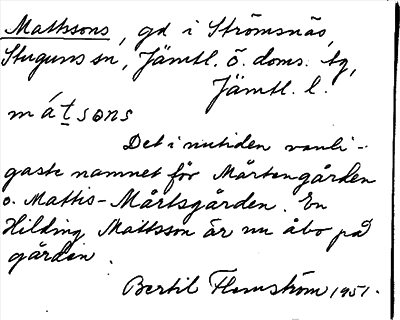 Mattssons, gd i Strömsnäs,
Stuguns sn, Jämtl. ö. doms. tg,
Jämtl. l.
mátsons
Det i nutiden vanli-
gaste namnet för Mårtengården
o. Mattis-Mårtsgården. En
Hilding Mattsson är nu åbo på
gården.
Bertil Flemström 1951.